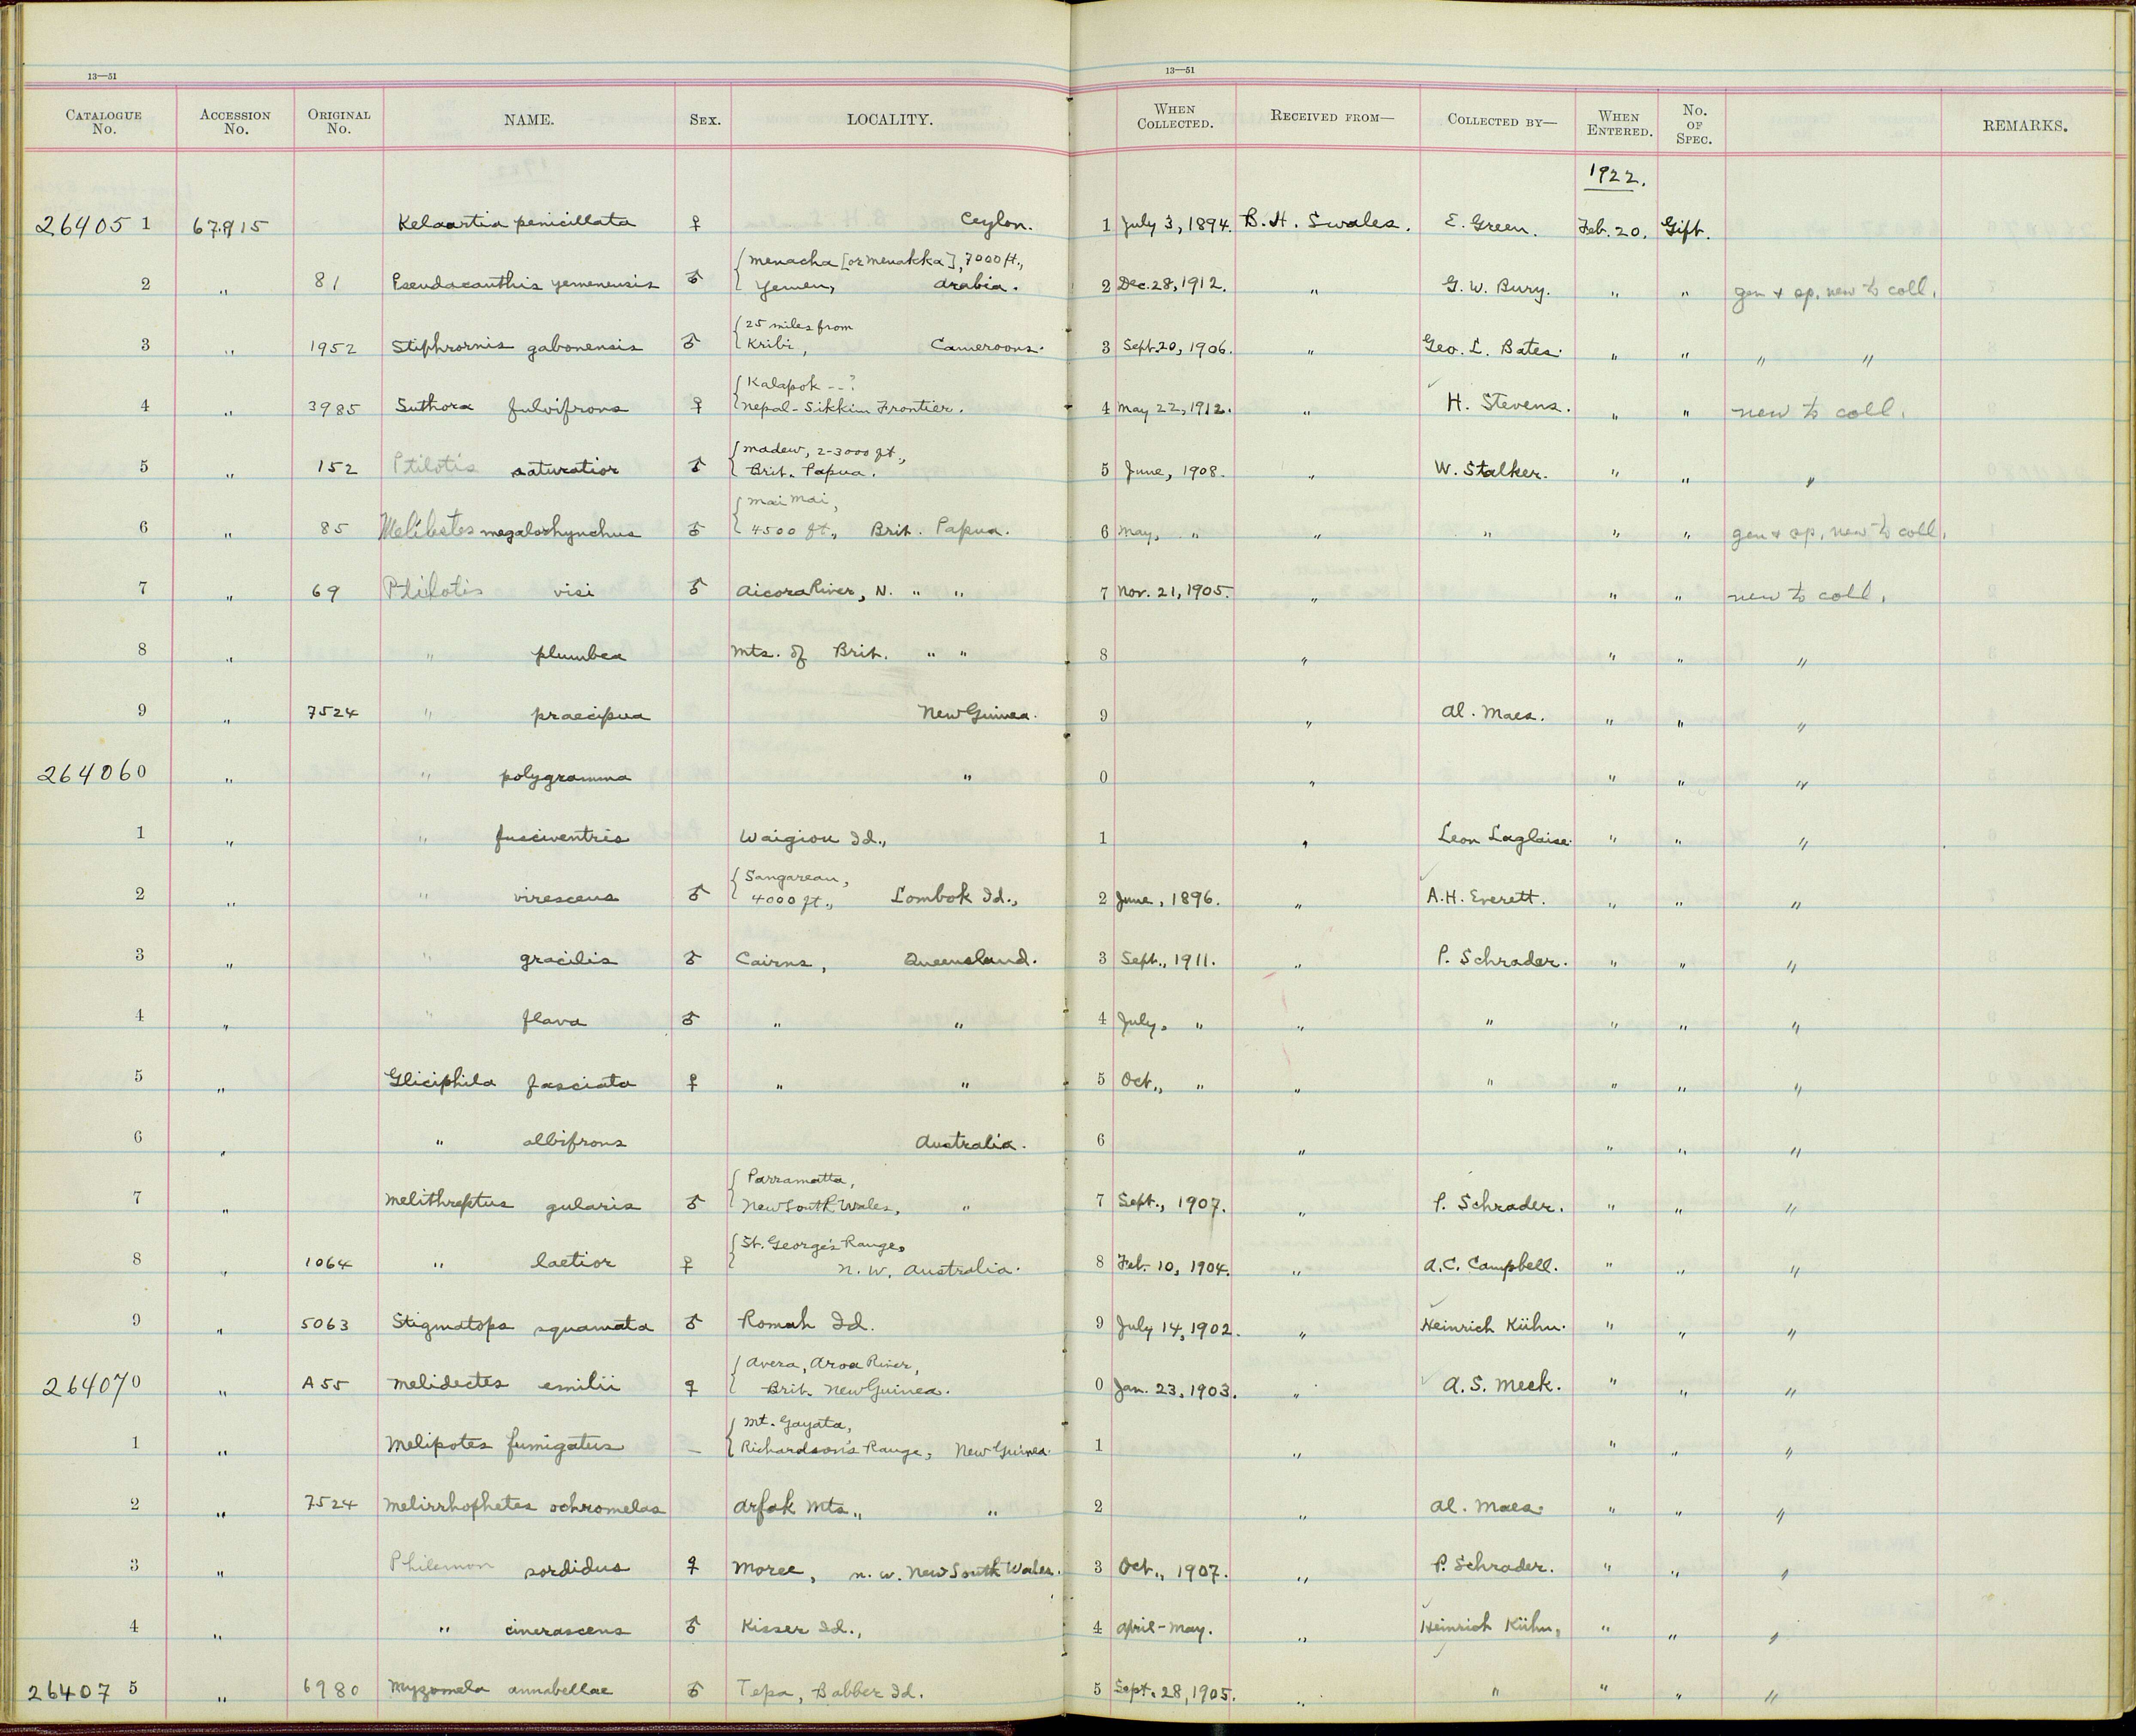 13—51 13—51
CATALOGUE No. ACCESSION No. ORIGINAL No. NAME. SEX. LOCALITY. WHEN COLLECTED. RECEIVED FROM— COLLECTED BY— WHEN ENTERED. No. OF SPEC. REMARKS.
1922.
264051 67915 Kelaartia penicillata ♀ Ceylon. 1 July 3, 1894. B. H. Swales. E. Green. Feb. 20. Gift.
{ Menacha [or Menakka], 7000 ft.,
2 " 81 Pseudacanthis yemenensis ♂ Yemen, Arabia. 2 Dec. 28, 1912. " G. W. Bury. " " gen & sp. new to coll.
{ 25 miles from
3 " 1952 Stiphrornis gabonensis ♂ Kribi, Cameroons. 3 Sept. 20, 1906. " Geo. L. Bates. " " " "
{ Kalapok --?
4 " 3985 Suthora fulvifrons ♀ Nepal-Sikkim Frontier. 4 May 22, 1912. " H. Stevens. " " new to coll.
{ Madew, 2-3000 ft.,
5 " 152 Ptilotis saturatior ♂ Brit. Papua. 5 June, 1908. " W. Stalker. " " "
{ Mai Mai,
6 " 85 Melilestes megalorhynchus ♂ 4500 ft., Brit. Papua. 6 May, " " " " " gen & sp. new to coll.
7 " 69 Ptilotis visi ♂ Aicora River, N. " " 7 Nov. 21, 1905. " " " new to coll.
8 " " plumbea Mts. of Brit. " " 8 " " " "
9 " 7524 " praecipua New Guinea. 9 " Al. Maes. " " "
264060 " " polygramma " 0 " " " "
1 " " fusciventris Waigiou Id., 1 " Leon Laglaise. " " "
{ Sangareau,
2 " " virescens ♂ 4000 ft., Lombok Id., 2 June, 1896. " A.H. Everett. " " "
3 " " gracilis ♂ Cairns, Queensland. 3 Sept., 1911. " P. Schrader. " " "
4 " " flava ♂ " " 4 July, " " " " " "
5 " Gliciphila fasciata ♀ " " 5 Oct., " " " " " "
6 " " albifrons Australia. 6 " " " "
{ Parramatta,
7 " Melithreptus gularis ♂ New South Wales, " 7 Sept., 1907. " P. Schrader. " " "
{ St. George's Range,
8 " 1064 " laetior ♀ N. W. Australia. 8 Feb. 10, 1904. " A.C. Campbell. " " "
9 " 5063 Stigmatops squamata ♂ Romah Id. 9 July 14, 1902. " Heinrich Kühn. " " "
{ Avera, Aroa River,
264070 " A 55 Melidectes emilii ♀ Brit. New Guinea. 0 Jan. 23, 1903. " A. S. Meek. " " "
{ Mt. Gayata,
1 " Melipotes fumigatus — Richardson's Range, New Guinea. 1 " " " "
2 " 7524 Melirrhophetes ochromelas Arfak Mts., " 2 " Al. Maes. " " "
3 " Philemon sordidus ♀ Moree, N. W. New South Wales. 3 Oct., 1907. " P. Schrader. " " "
4 " " cinerascens ♂ Kisser Id., 4 April-May. " Heinrich Kühn, " " "
264075 " 6980 Myzomela annabellae ♂ Tepa, Babber Id. 5 Sept. 28, 1905. " " " " "